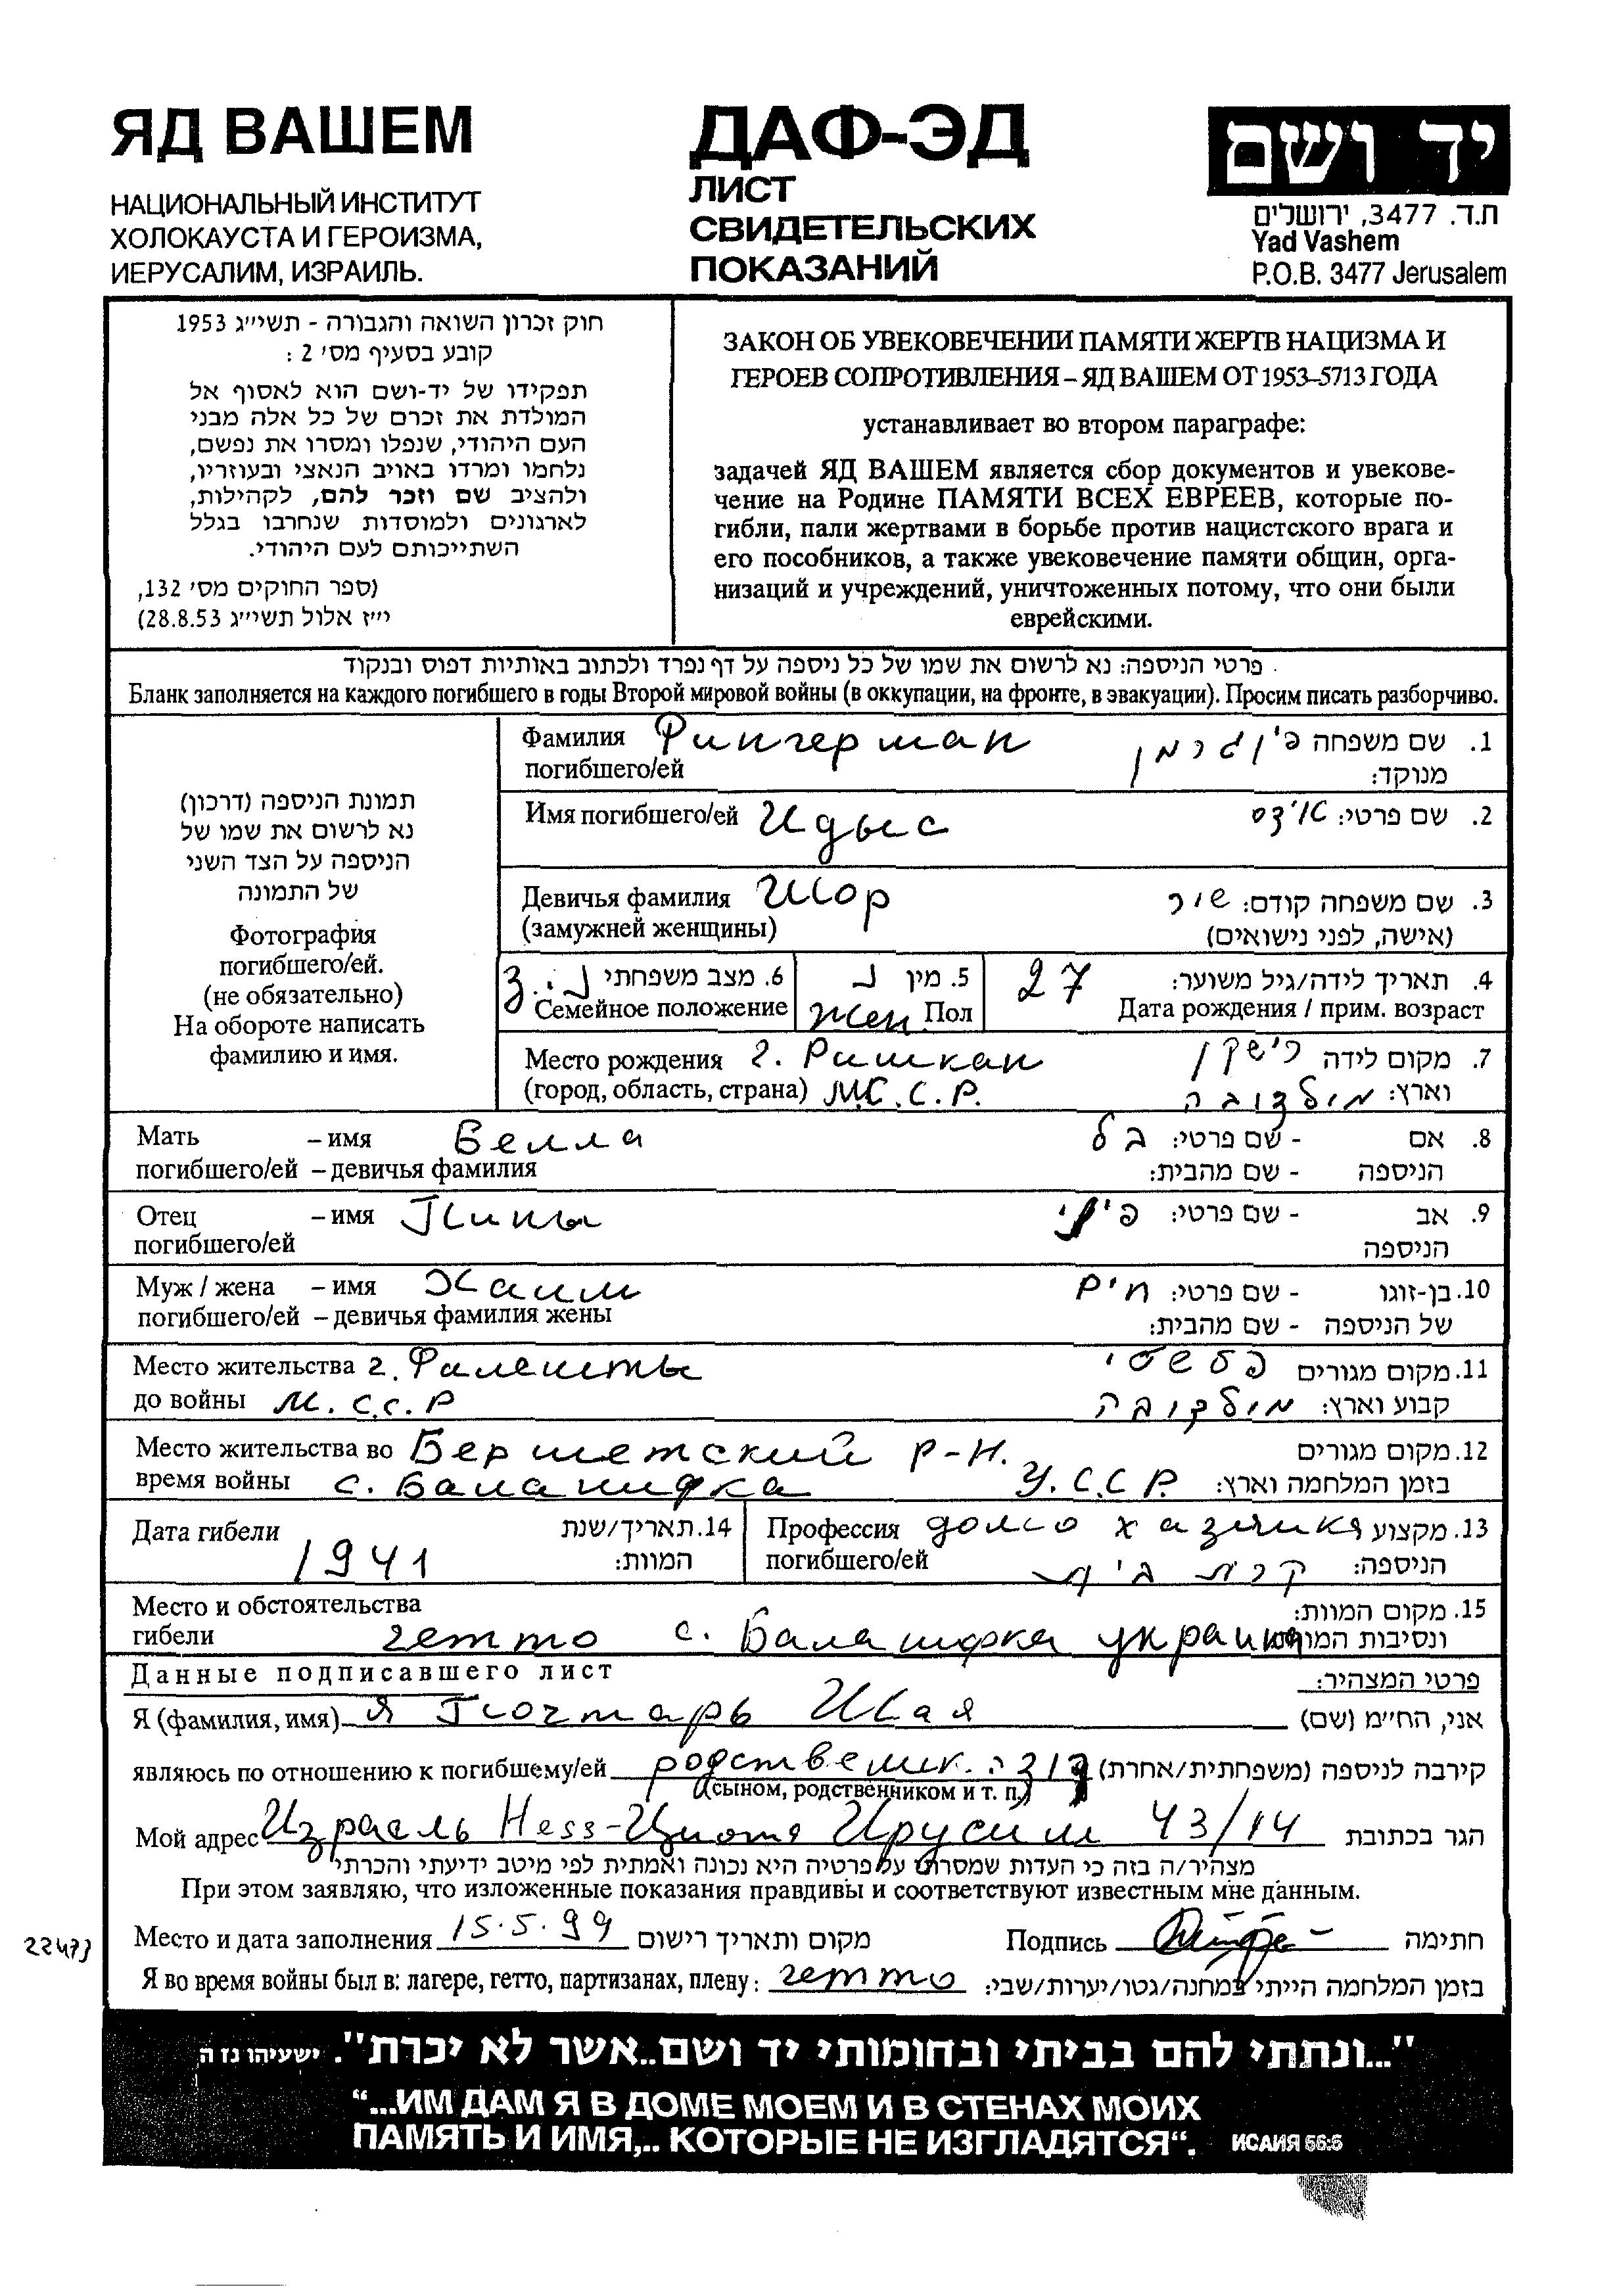 ЯД ВАШЕМ
НАЦИОНАЛЬНЫЙ ИНСТИТУТ
ХОЛОКАУСТА И ГЕРОИЗМА,
ИЕРУСАЛИМ, ИЗРАИЛЬ.
ДАФ-ЭД
ЛИСТ
СВИДЕТЕЛЬСКИХ
ПОКАЗАНИЙ
יד ושם
ת.ד. 3477, ירושלים
Yad Vashem
P.O.B. 3477 Jerusalem
חוק זכרון השואה והגבורה - תשי״ג 1953
קובע בסעיף מס׳ 2 :
תפקידו של יד-ושם הוא לאסוף אל
המולדת את זכרם של כל אלה מבני
העם היהודי, שנפלו ומסרו את נפשם,
נלחמו ומרדו באויב הנאצי ובעוזריו,
ולהציב שם וזכר להם, לקהילות,
לארגונים ולמוסדות שנחרבו בגלל
השתייכותם לעם היהודי.
(ספר החוקים מס׳ 132,
י״ז אלול תשי״ג 28.8.53)
ЗАКОН ОБ УВЕКОВЕЧЕНИИ ПАМЯТИ ЖЕРТВ НАЦИЗМА И
ГЕРОЕВ СОПРОТИВЛЕНИЯ – ЯД ВАШЕМ ОТ 1953–5713 ГОДА
устанавливает во втором параграфе:
задачей ЯД ВАШЕМ является сбор документов и увекове-
чение на Родине ПАМЯТИ ВСЕХ ЕВРЕЕВ, которые по-
гибли, пали жертвами в борьбе против нацистского врага и
его пособников, а также увековечение памяти общин, орга-
низаций и учреждений, уничтоженных потому, что они были
еврейскими.
פרטי הניספה: נא לרשום את שמו של כל ניספה על דף נפרד ולכתוב באותיות דפוס ובנקוד
Бланк заполняется на каждого погибшего в годы Второй мировой войны (в оккупации, на фронте, в эвакуации). Просим писать разборчиво.
תמונת הניספה (דרכון)
נא לרשום את שמו של
הניספה על הצד השני
של התמונה
Фотография
погибшего/ей.
(не обязательно)
На обороте написать
фамилию и имя.
Фамилия Фингерман 1. שם משפחה פינגרמן
погибшего/ей מנוקד:
Имя погибшего/ей Идыс 2. שם פרטי: אידס
Девичья фамилия Шор 3. שם משפחה קודם: שור
(замужней женщины) (אישה, לפני נישואים)
6. מצב משפחתי נ. З.
Семейное положение
5. מין נ
Жен Пол
27 4. תאריך לידה/גיל משוער:
Дата рождения / прим. возраст
Место рождения г. Ришкан 7. מקום לידה רישקן
(город, область, страна) М.С.С.Р. וארץ: מולדובה
Мать – имя Белла 8. אם - שם פרטי: בלה
погибшего/ей – девичья фамилия הניספה - שם מהבית:
Отец – имя Пины 9. אב - שם פרטי: פיני
погибшего/ей הניספה
Муж / жена – имя Хаим 10. בן-זוגו - שם פרטי: חים
погибшего/ей – девичья фамилия жены של הניספה - שם מהבית:
Место жительства г. Фалешты 11. מקום מגורים פלשטי
до войны М.С.С.Р קבוע וארץ: מולדובה
Место жительства во Бершетский р-н. 12. מקום מגורים
время войны с. Баланидка У.С.С.Р. בזמן המלחמה וארץ:
Дата гибели 1941 14. תאריך/שנת
המוות:
Профессия домо хазяика 13. מקצוע
погибшего/ей עקרת בית הניספה:
Место и обстоятельства 15. מקום המוות:
гибели гетто с. Украина ונסיבות המוות
Данные подписавшего лист פרטי המצהיר:
Я (фамилия, имя) Я Почтарь Шая אני, הח״מ (שם)
являюсь по отношению к погибшему/ей родственик. קירבה לניספה (משפחתית/אחרת)
(сыном, родственником и т. п.)
Мой адрес Израель Hess-Циона Ирусим 43/14 הגר בכתובת
מצהיר/ה בזה כי העדות שמסרתי על פרטיה היא נכונה ואמתית לפי מיטב ידיעתי והכרתי
При этом заявляю, что изложенные показания правдивы и соответствуют известным мне данным.
22473
Место и дата заполнения 15.5.99 מקום ותאריך רישום Подпись חתימה
Я во время войны был в: лагере, гетто, партизанах, плену: гетто בזמן המלחמה הייתי במחנה/גטו/יערות/שבי:
"...ונתתי להם בביתי ובחומותי יד ושם..אשר לא יכרת". ישעיהו נז ה
“...ИМ ДАМ Я В ДОМЕ МОЕМ И В СТЕНАХ МОИХ
ПАМЯТЬ И ИМЯ,.. КОТОРЫЕ НЕ ИЗГЛАДЯТСЯ“. ИСАИЯ 56:5